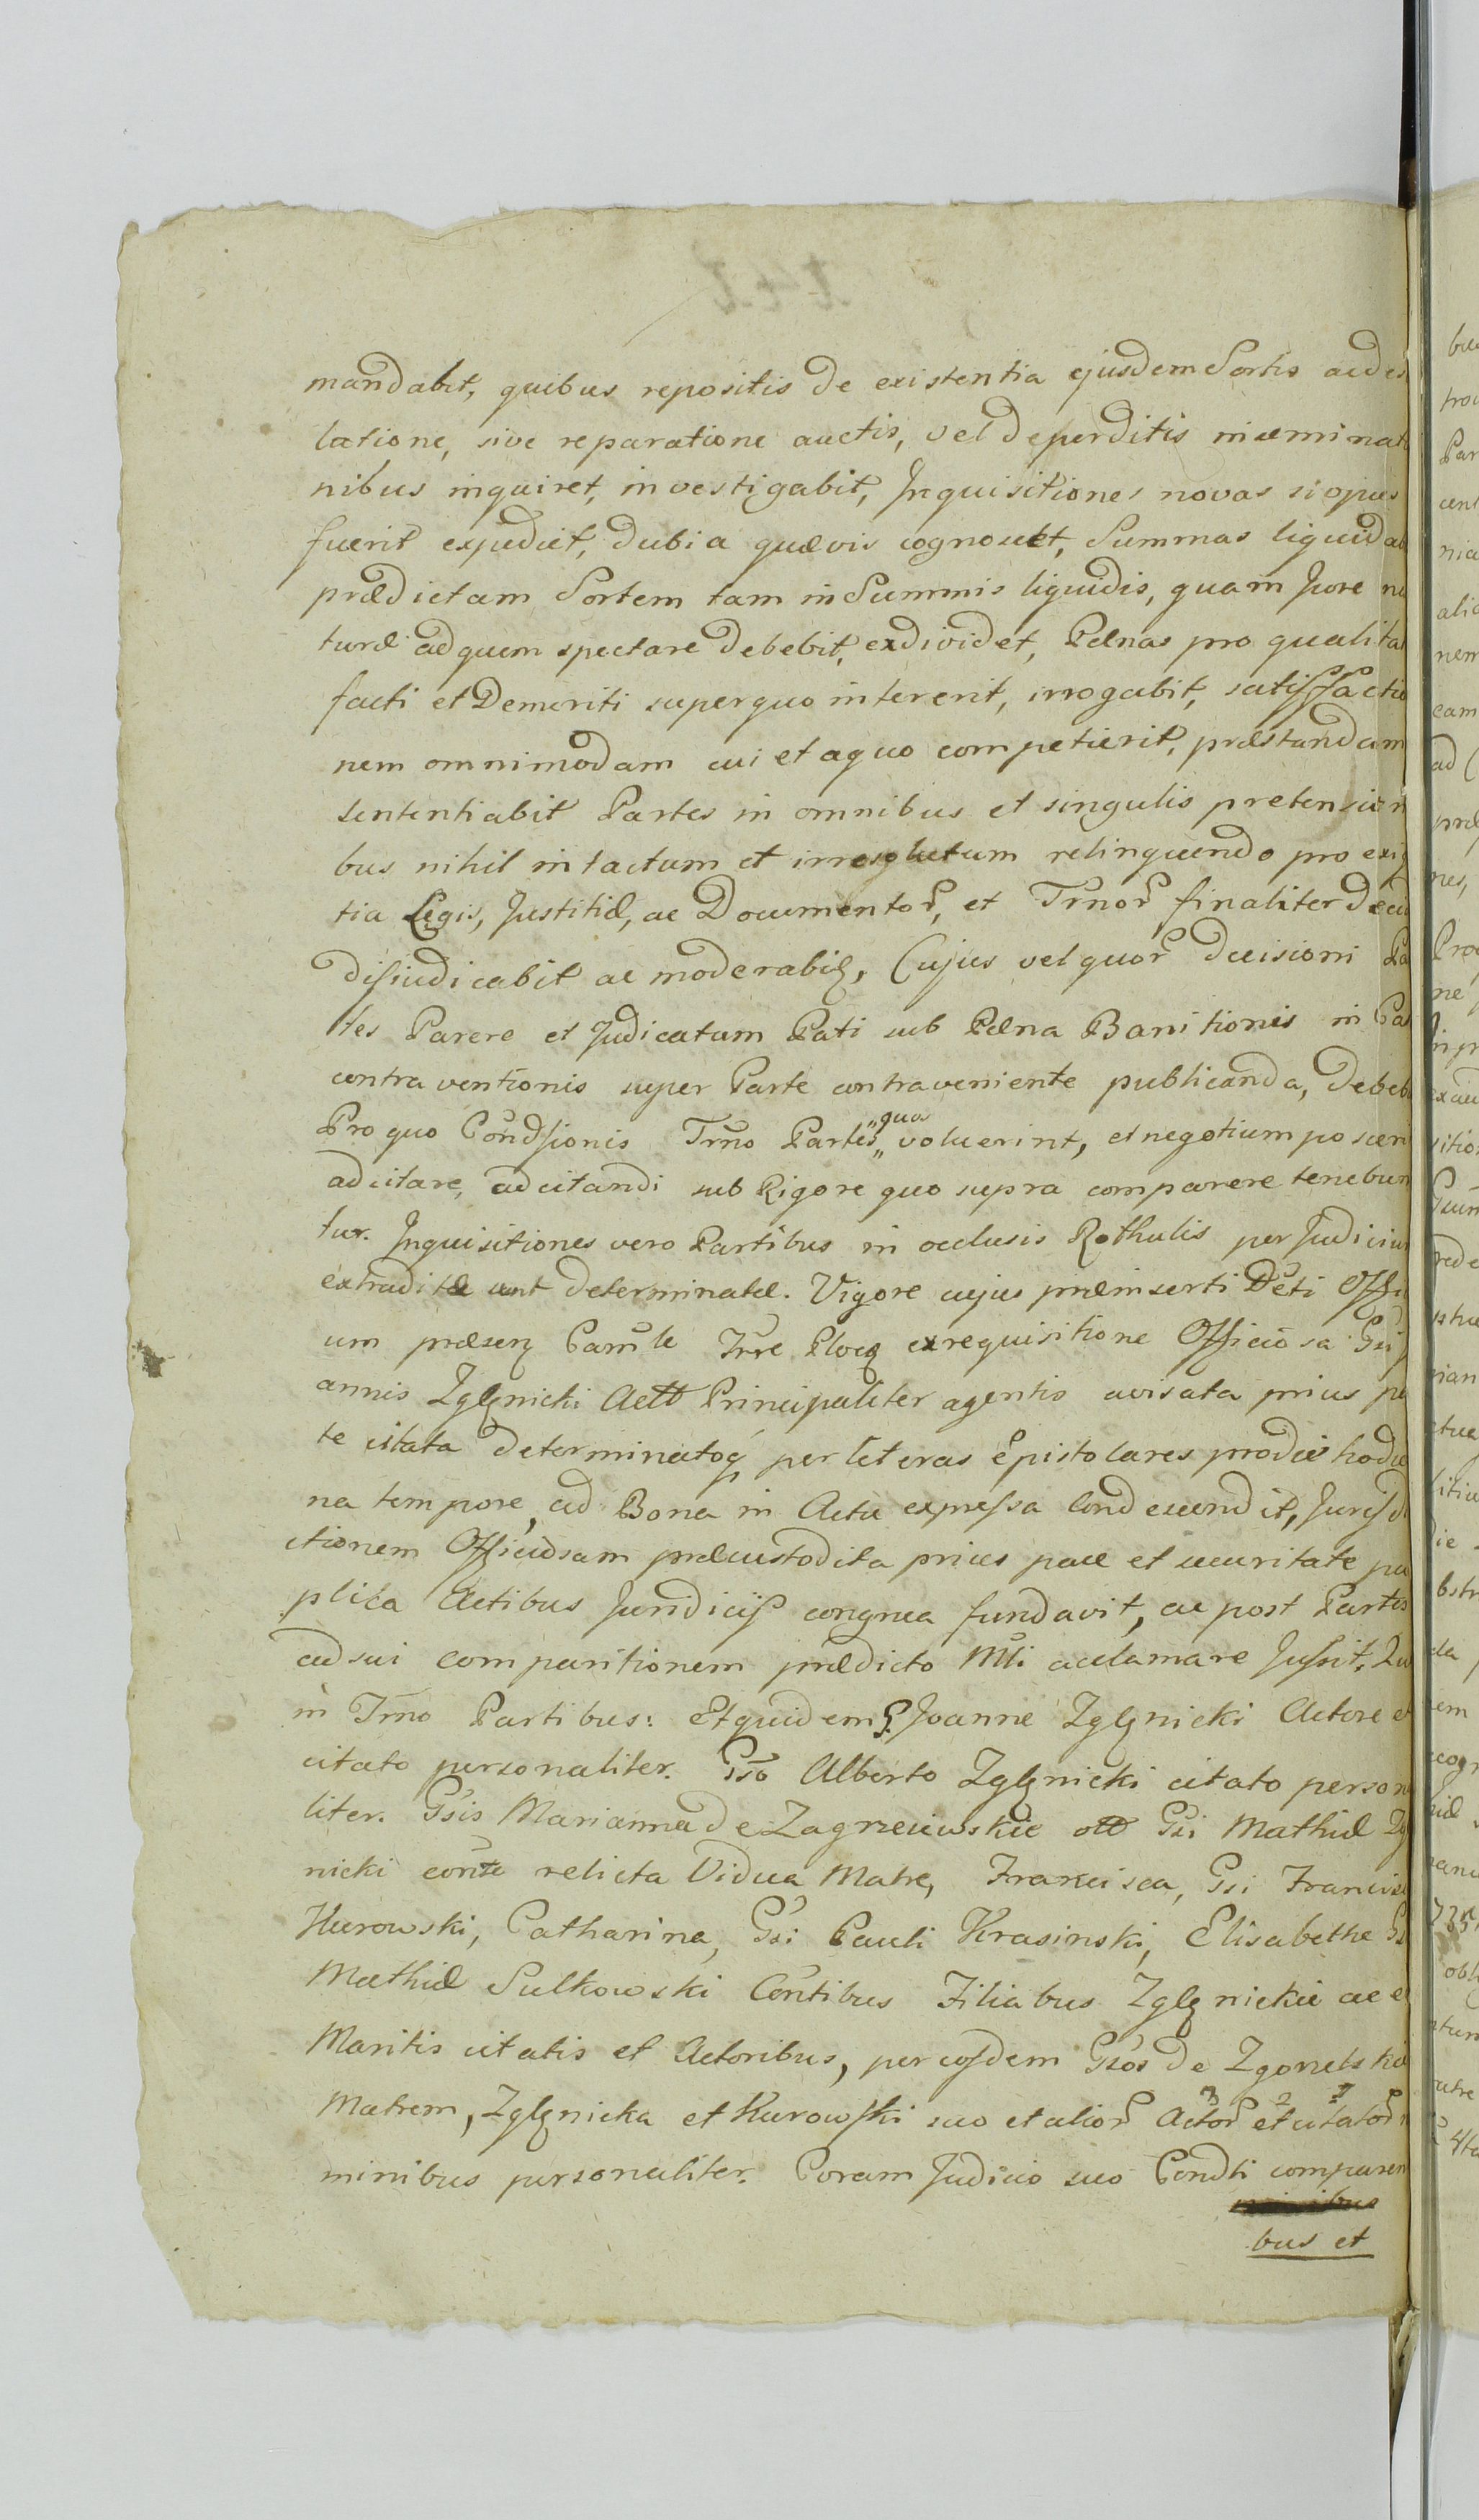 mandabit, quibus repositis de existentia ejusdem Sortis aedes
latione, sive reparatione auctis, vel deperditis
nibus inquiret, investigabit, Inquisitiones novas si opus
fuerit expediet, dubia quævis cognoscet, Summas liquidas
prædictam Sortem tam in Summis liquidis, quam
turæ ad quem spectare debebit, exdividet, Pænas pro qualita
facti et Demeriti super quo intererit, irrogabit, satisffactio
nem omnimodam cui et a quo competierit, præstandam
sententiabit Partes in omnibus et singulis pretension
bus nihil intactum et irresolutum relinquendo pro exig
tia Legis, Justitiæ, ac Documentor, et Trnor finaliter
disiudicabit ac moderabit, Cujus vel quor decisioni Pa
tes Parere et Judicatum Pati sub Pæna Banitionis in Cas
contraventionis super Parte contraveniente publicanda, debeb
Pro quo Condsionis Trno Partes „quas„ voluerint, et negotium poscer
adcitare, adcitandi sub Rigore quo supra comparere tenebun
tur. Inquisitiones vero Partibus in occlusis Rothulis per Judicium
extraditæ sunt determinatæ. Vigore cujus præinserti Dcti Offici
um præsens Camrle Trre Ploc ex requisitione Officiosa Gsi
annis Zglynicki Actt Principaliter agentis avisata prius pa
te citata determinatoq per literas Epistolares prodie hodie
na tempore, ad Bona in Actu expressa condescendit, Jurisdi
ctionem Officiosam præcustodita prius pace et securitate pu
plica Actibus Juridicis congrua fundavit, ac post Partes
ad sui comparitionem prædicto Mli acclamare Jussit,
in Trno Partibus: Et quidem G. Joanne Zglynicki Actore et
citato personaliter. Gso Alberto Zglynicki citato person
liter. Gsis Marianna de Zagrzeiewskie ott Gsi Mathiæ Zg
nicki conte relicta Vidua Matre, Francisca, Gsi Francisci
Kurowski, Catharina, Gsi Pauli Krasinski, Elisabethe Gs
Mathiæ Sulkowski Contibus Filiabus Zglynickie ac e
Maritis citatis et Actoribus, per eosdem Gsos de
Matrem, Zglynicka et Kurowski suo et alior Actor 3 et 2 citator 1
minibus personaliter. Coram Judicio suo Condli comparen
bus et